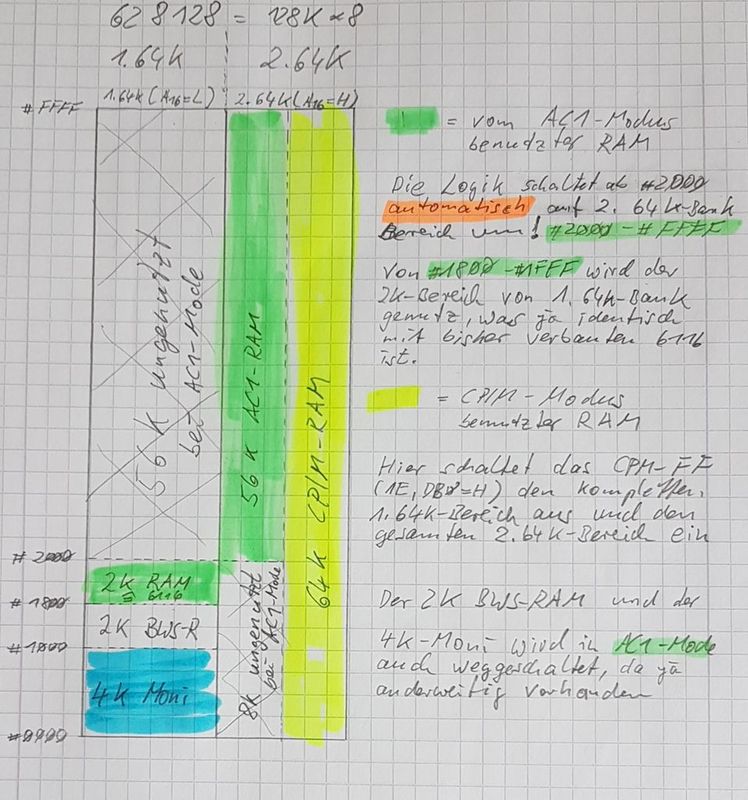 628128 = 128K x8
1.64K 2.64K
1.64K (A16=L) 2.64K (A16=H)
#FFFF
56K ungenutzt
bei AC1-Mode
56K AC1-RAM
64K CP/M-RAM
#2000
2K RAM
≙ 6116
#1800
2K BWS-R
#1000
4K Moni
#0000
8K ungenutzt
bei AC1-Mode
= vom AC1-Modus
benutzter RAM
Die Logik schaltet ab #2000
automatisch auf 2. 64K-Bank
Bereich um! #2000-#FFFF
Von #1800-#1FFF wird der
2K-Bereich von 1. 64K-Bank
genutz, was ja identisch
mit bisher verbauten 6116
ist.
= CP/M-Modus
benutzter RAM
Hier schaltet das CPM-FF
(1E, DB0=H) den kompletten
1.64K-Bereich aus und den
gesamten 2.64K-Bereich ein
Der 2K BWS-RAM und der
4K-Moni wird in AC1-Mode
auch weggeschaltet, da ja
anderweitig vorhanden